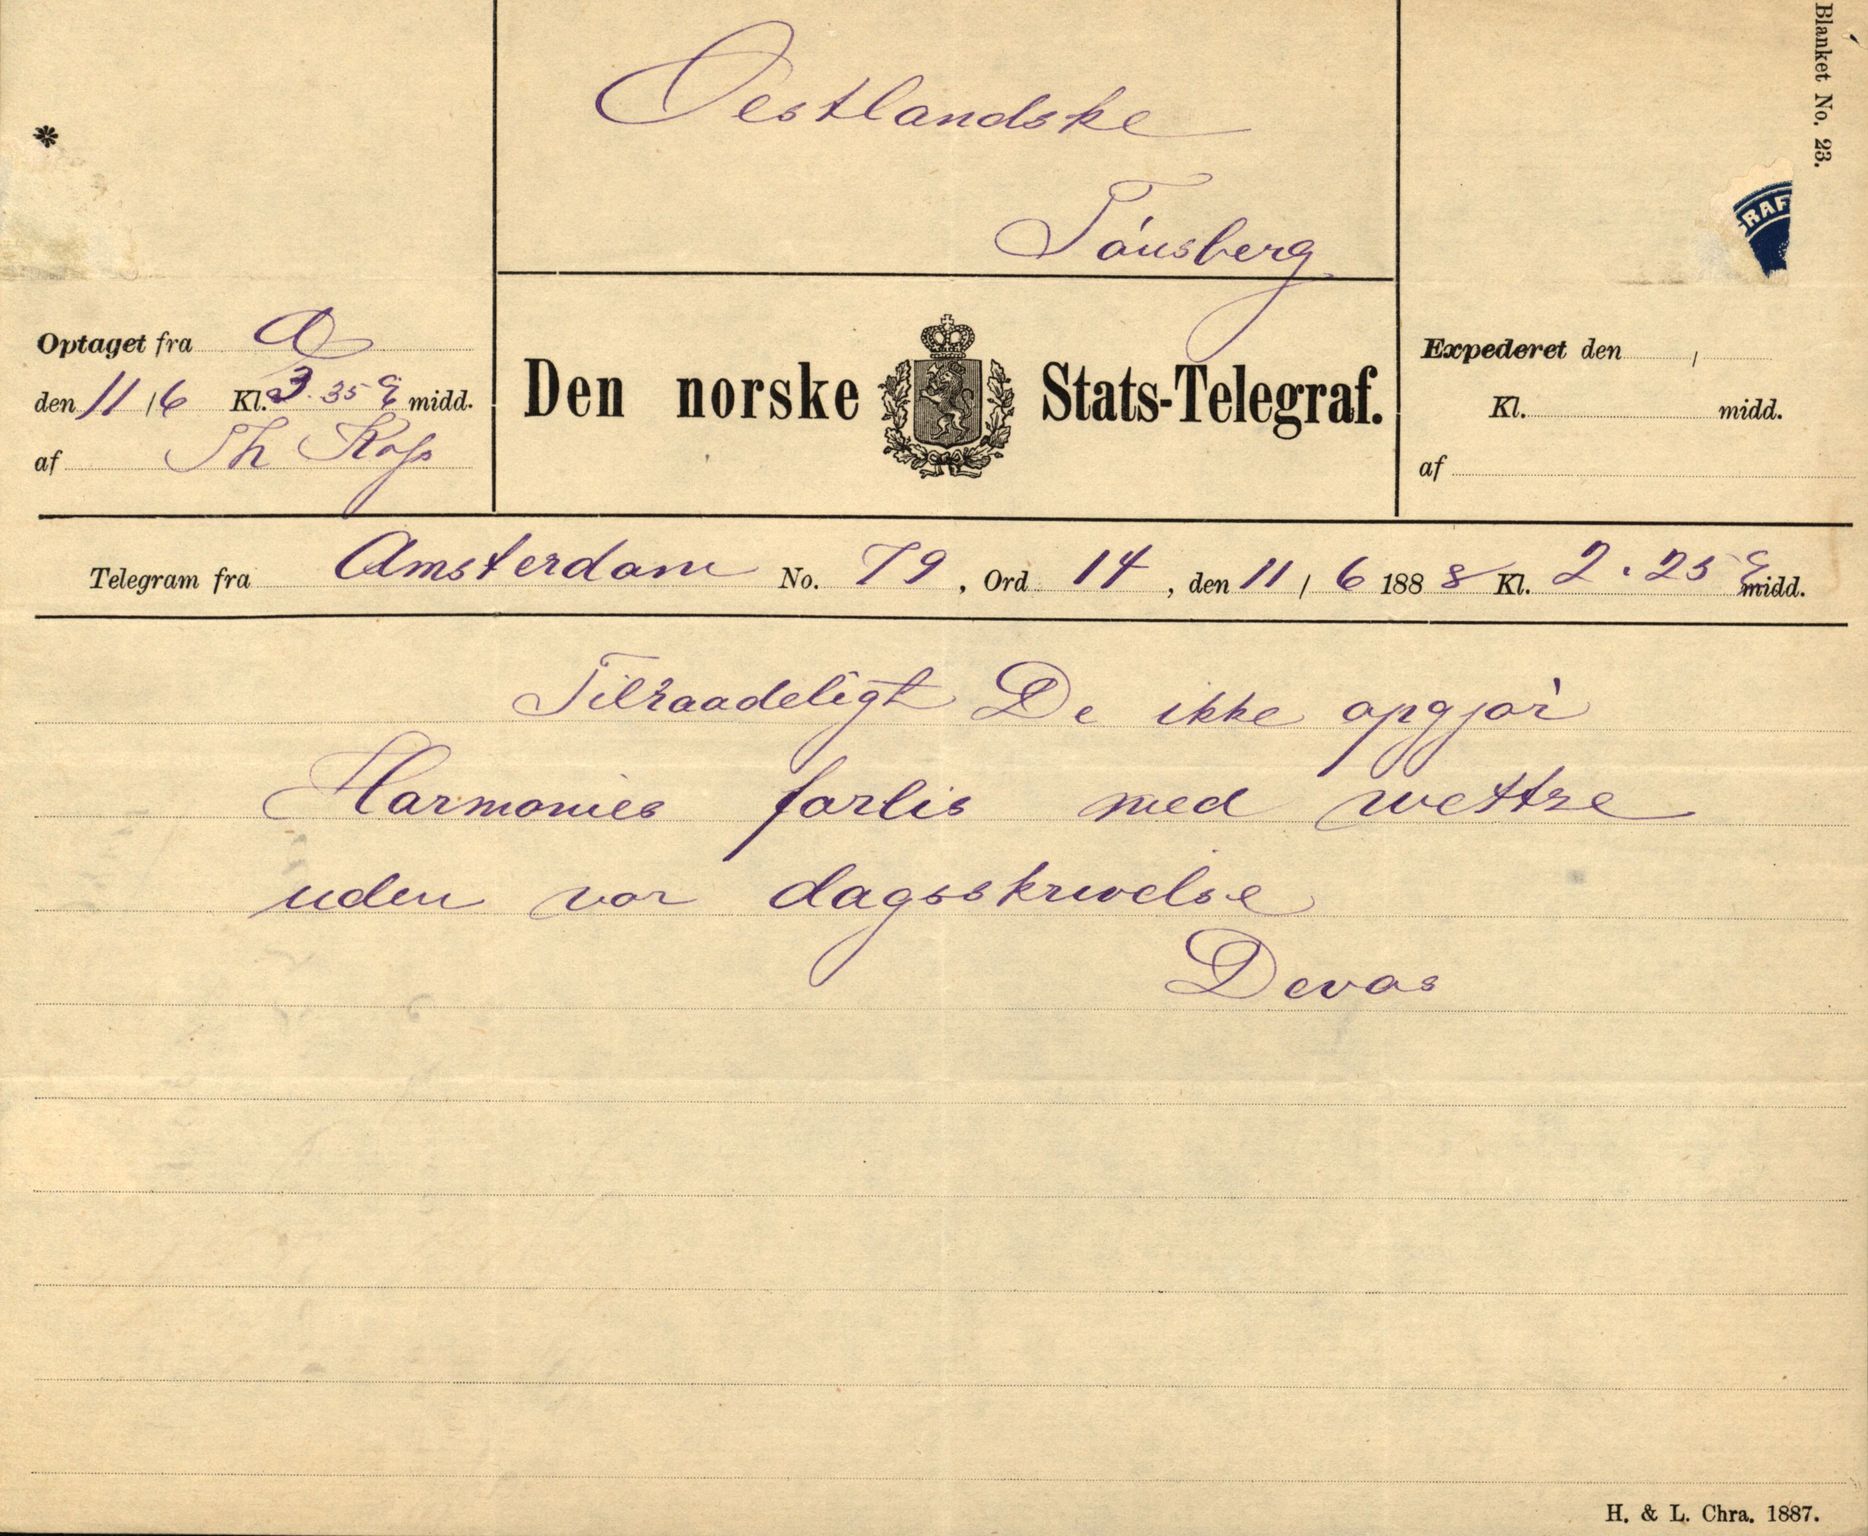 Blanket No. 23.
Oestlandske
*
Tónsberg
RAF
Optaget fra
den 11/6 Kl. 3.35 E midd.
af Th
Den norske Stats-Telegraf.
Expederet den /
Kl. midd.
af
Telegram fra Amsterdam No. 79, Ord 14, den 11/6 1888 Kl. 2.25 E midd.
Tilraadeligt De ikke opgjór
Harmonies forlis med wettre
uden vor dagsskrivelse
Devas
H. & L. Chra. 1887.